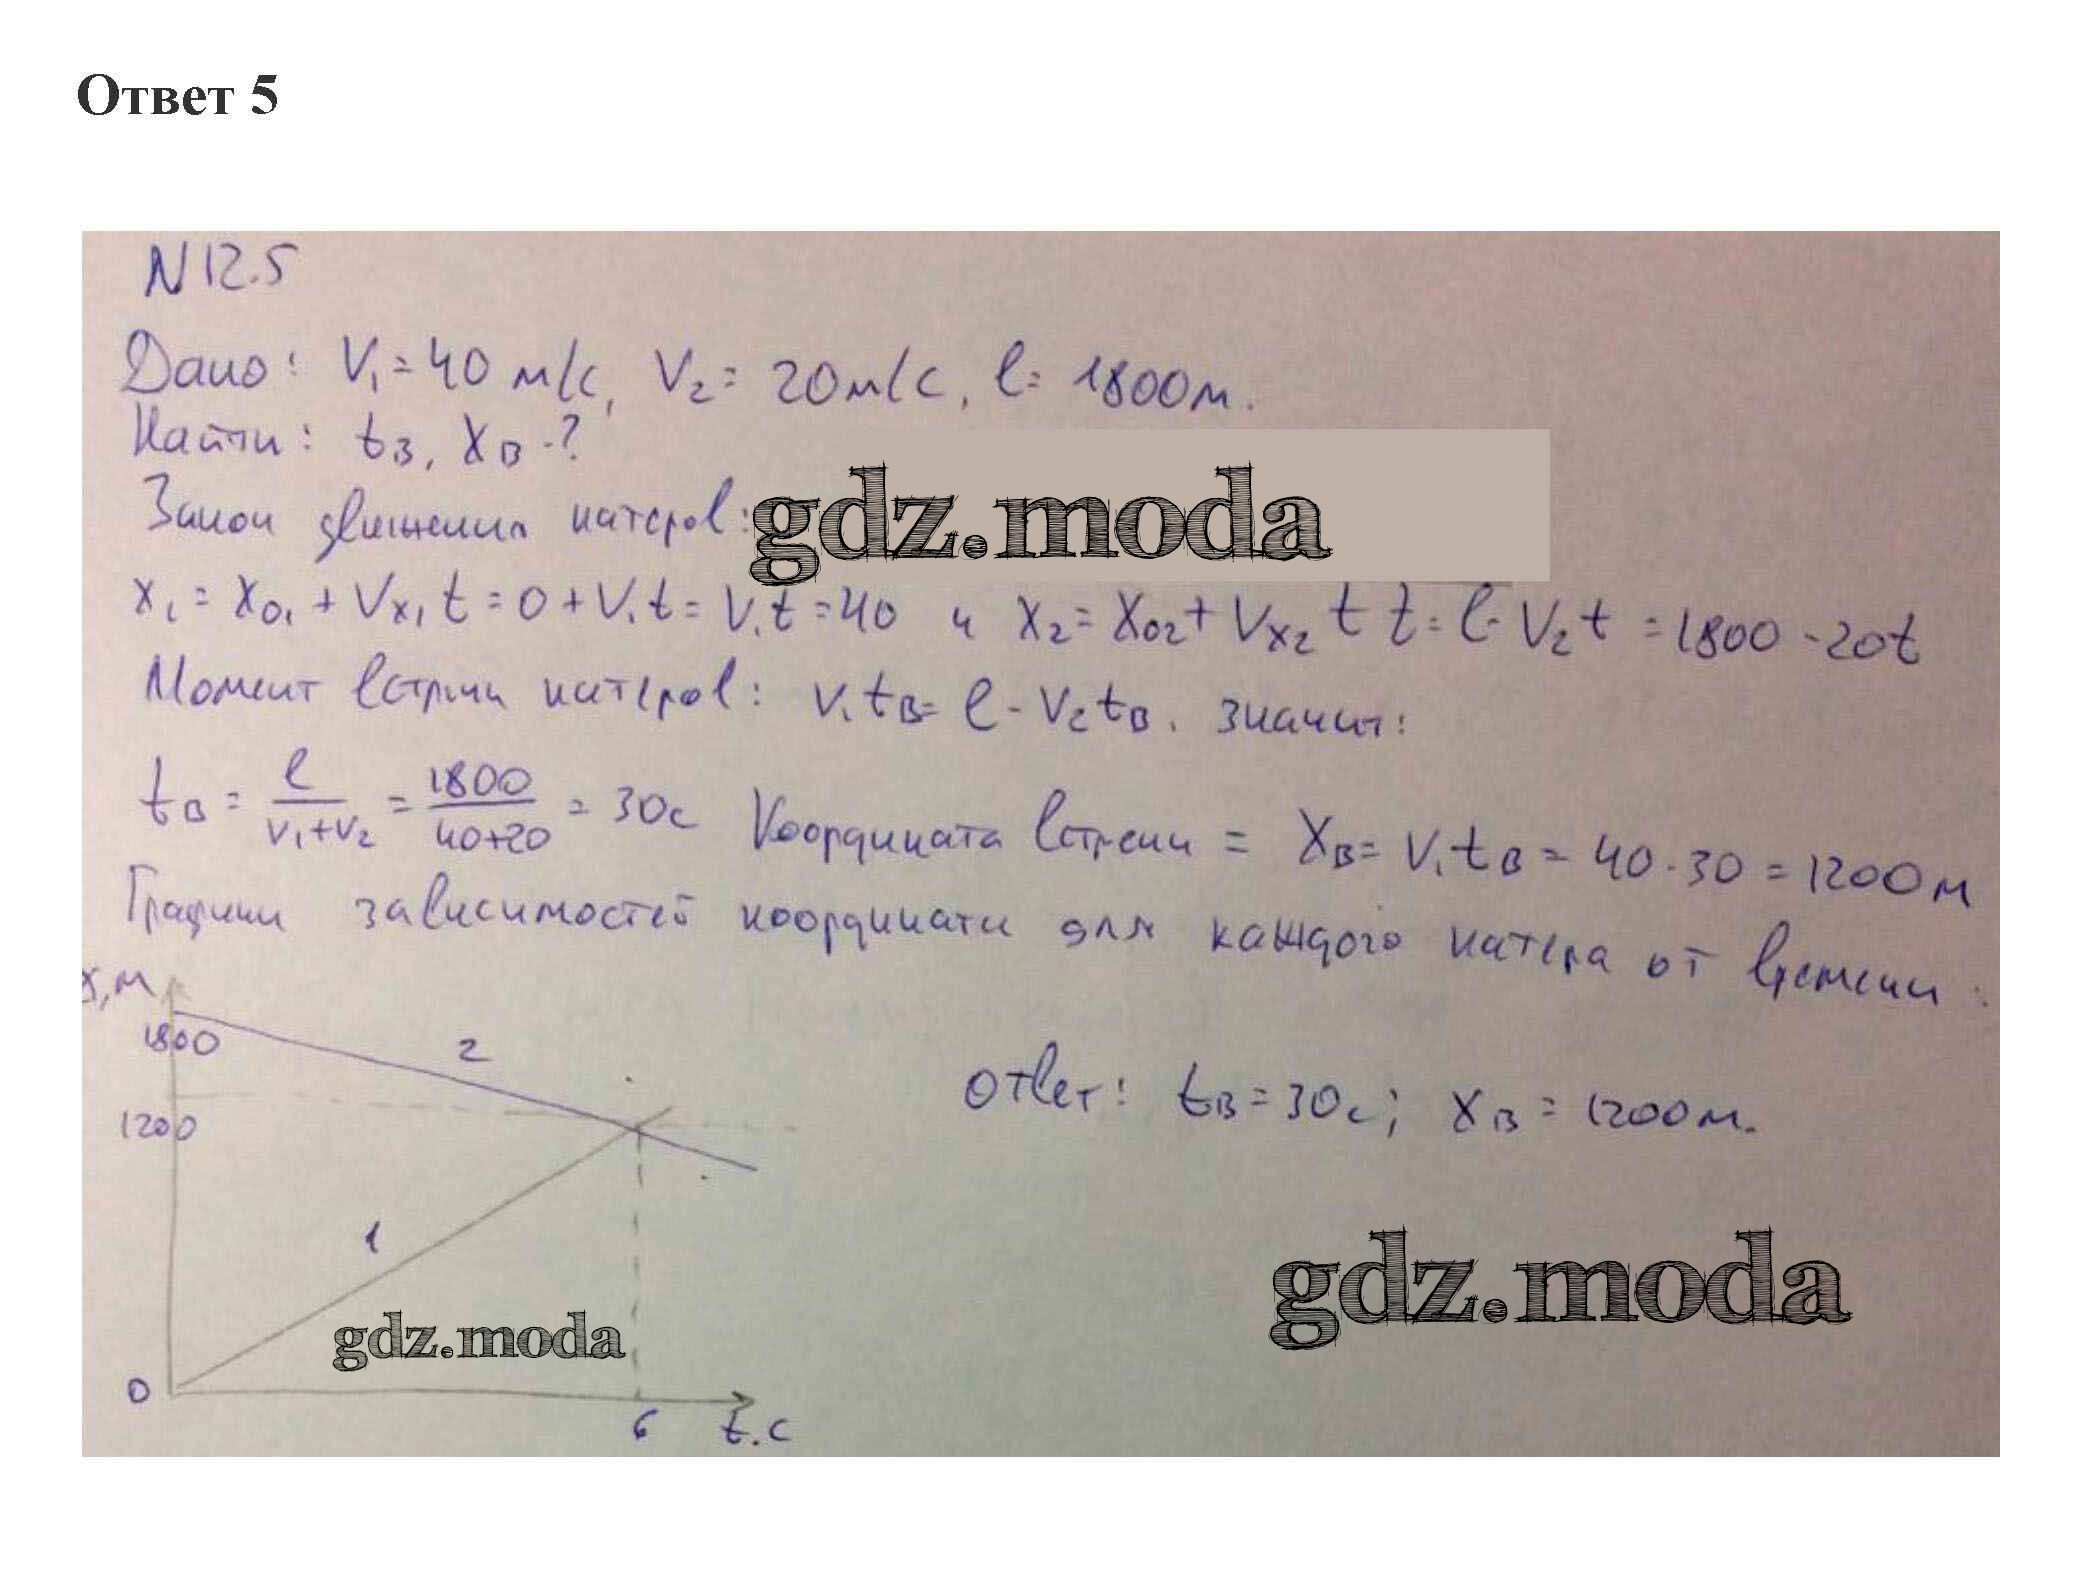 Ответ 5
N12.5
Дано: V₁=40 м/с, V₂=20м/с, l=1800м.
Найти: tв, Xв-?
gdz.moda
Закон движения катеров:
x₁=x₀₁+Vx₁t=0+V₁t=V₁t=40 и x₂=x₀₂+Vx₂ t t=l-V₂t=1800-20t
Момент встречи катеров: V₁tв=l-V₂tв. значит:
tв=l/(V₁+V₂)=1800/(40+20)=30с Координата встречи = Xв=V₁tв=40·30=1200м
Графики зависимостей координати для каждого катера от времени:
x,м
1800
2
1200
Ответ: tв=30с; xв=1200м.
1
gdz.moda
gdz.moda
0
6 t.с